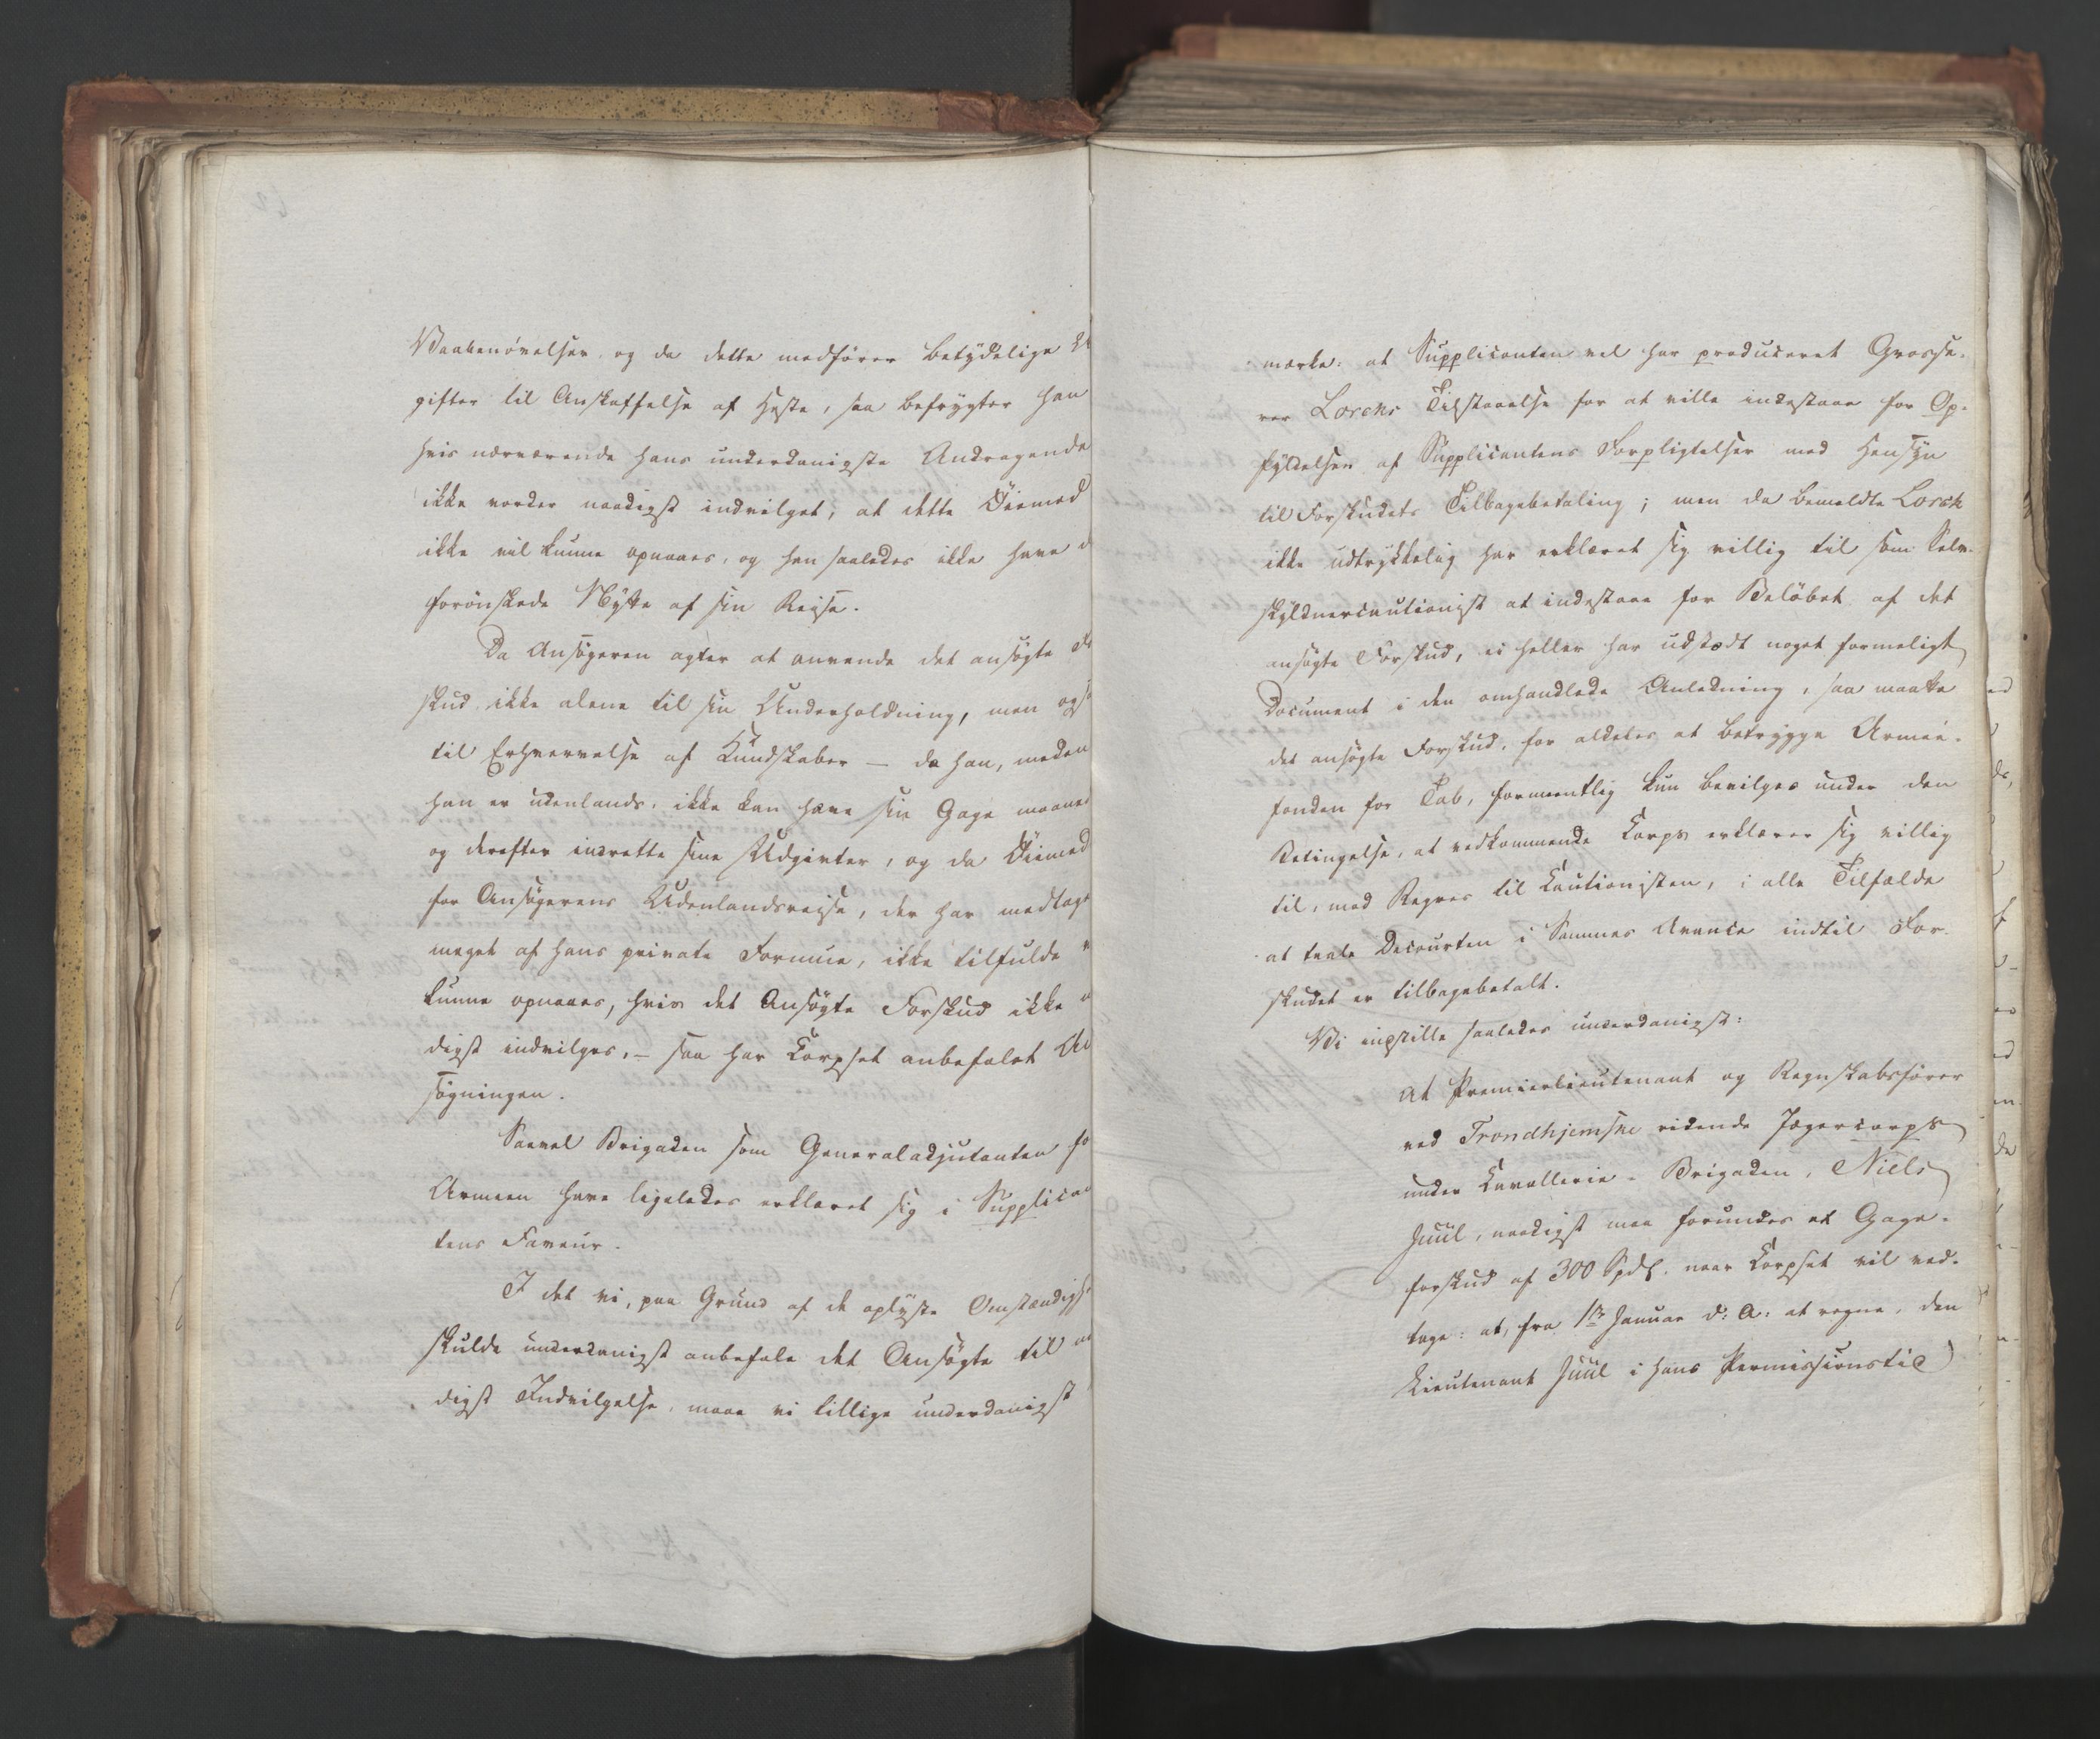 Vaabenövelser og da dette medförer betydelige U
gifter til Anskaffelse af Heste, saa befrygter han
hvis nærværende hans underdanigste Andragende
ikke vorder naadigst indvilget, at dette Öiemed
ikke vil kunne opnaaes, og han saaledes ikke have d
forönskede Nytte af sin Reise.
Da Ansögeren agter at anvende det ansögte Fo
skud ikke alene til sin Underholdning, men ogs
til Erhvervelse af Kundskaber — da han, meden
han er udenlands, ikke kan hæve sin Gage maaned
og derefter indrette sine Udgivter, og da Öiemed
for Ansögerens Udenlandsreise, der har medtaget
meget af hans private Formue, ikke tilfulde v
kunne opnaaes, hvis det Ansögte Forskud ikke n
digst indvilges, – saa har Korpset anbefalet An
sögningen.
Saavel Brigaden som Generaladjutanten fo
Armeen have ligeledes erklæret sig i Supplican
tens Faveur.
I det vi, paa Grund af de oplyste Omstændigh
skulde underdanigst anbefale det Ansögte til na
digst Indvilgelse, maae vi tillige underdanigst
mærke: at Supplicanten vel har produceret Grosse-
rer Lorchs Tilstaaelse for at ville indestaae for Op-
fyldelsen af Supplicantens Forpligtelser med Hensyn
til Forskudets Tilbagebetaling; men da bemeldte Lorch
ikke udtrykkelig har erklæret sig villig til som Selv-
skyldnercautionist at indestaae for Belöbet af det
ansögte Forskud, ei heller har udstædt noget formeligt
Document i den omhandlede Anledning, saa maatte
det ansögte Forskud, for aldeles at betrygge Armée-
fonden for Tab, formeentlig kun bevilges under den
Betingelse, at vedkommende Corps erklærer sig villig
til, med Regres til Cautionisten, i alle Tilfælde
at taale Decourten i Sammes Avance indtil For-
skudet er tilbagebetalt.
Vi inpstille saaledes underdanigst:
At Premierlieutenant og Regnskabsförer
ved Trondhjemske ridende Jægercorps
under Cavallerie-Brigaden, Niels
Juul, naadigst maa forundes et Gage-
forskud af 300 Spd. naar Corpset vil ved-
tage: at, fra 1ste Januar d: A: at regne, den
Lieutenant Juul i hans Permissionstid